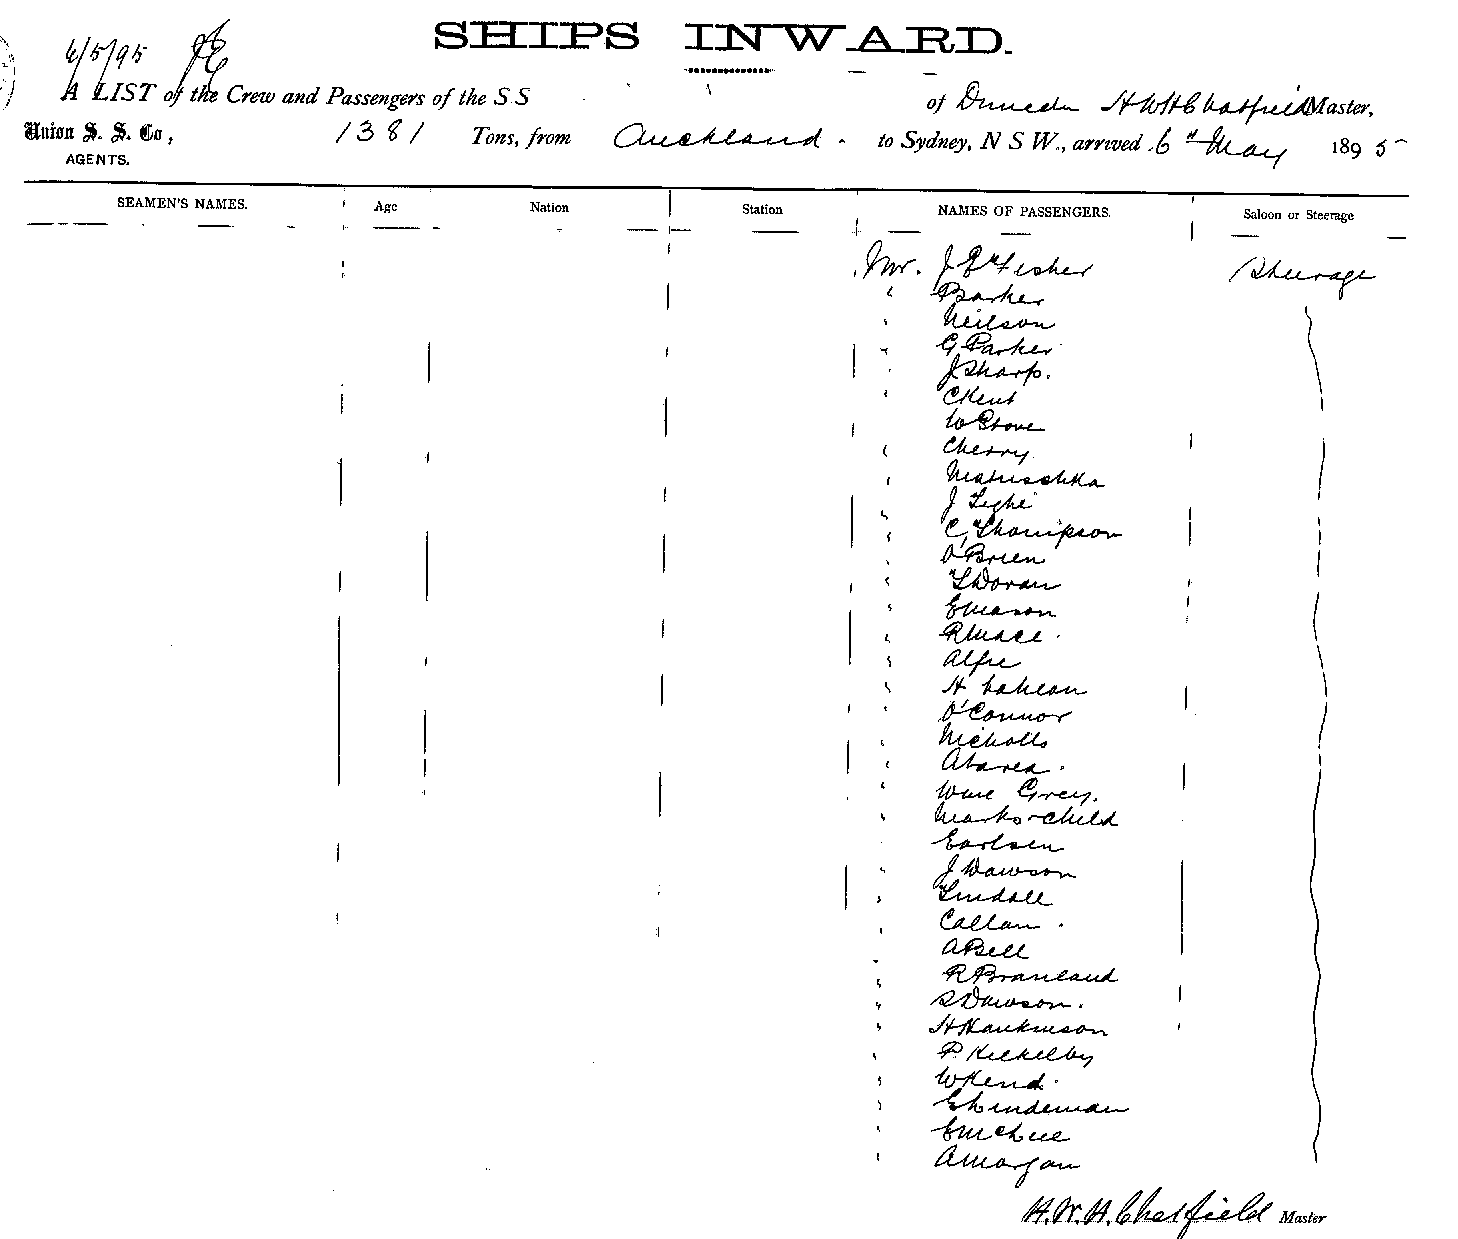 SHIPS INWARD.
6/5/95
A LIST of the Crew and Passengers of the S S of Dunedin H W H Chatfield Master,
Union S. S. Co, 1381 Tons, from Auckland. to Sydney, N S W., arrived 6th May 1895
AGENTS.
SEAMEN'S NAMES. Age Nation Station NAMES OF PASSENGERS. Saloon or Steerage
Mr. J E Fisher Steerage
" Barker
" Neilson
" G Parker
" J Sharp.
" C Kent
W Grove
" Cherry
" Matuschka
" J Tighe
" C, Thompson
" O'Brien
" T Doran
" E Mason
" R Mace.
" Alfre
" H
" O'Connor
" Nicholls
" Atarea.
" Wm Grey.
" Marks & Child
Carlsen
" J Dawson
" Tindall
" Callan.
" A Bell
" R Braneland
" S Dawson.
" H Hankinson
" P Kickelby
" W Kend.
" E Lindeman
" E
" A Morgan
H. W. H. Chatfield Master